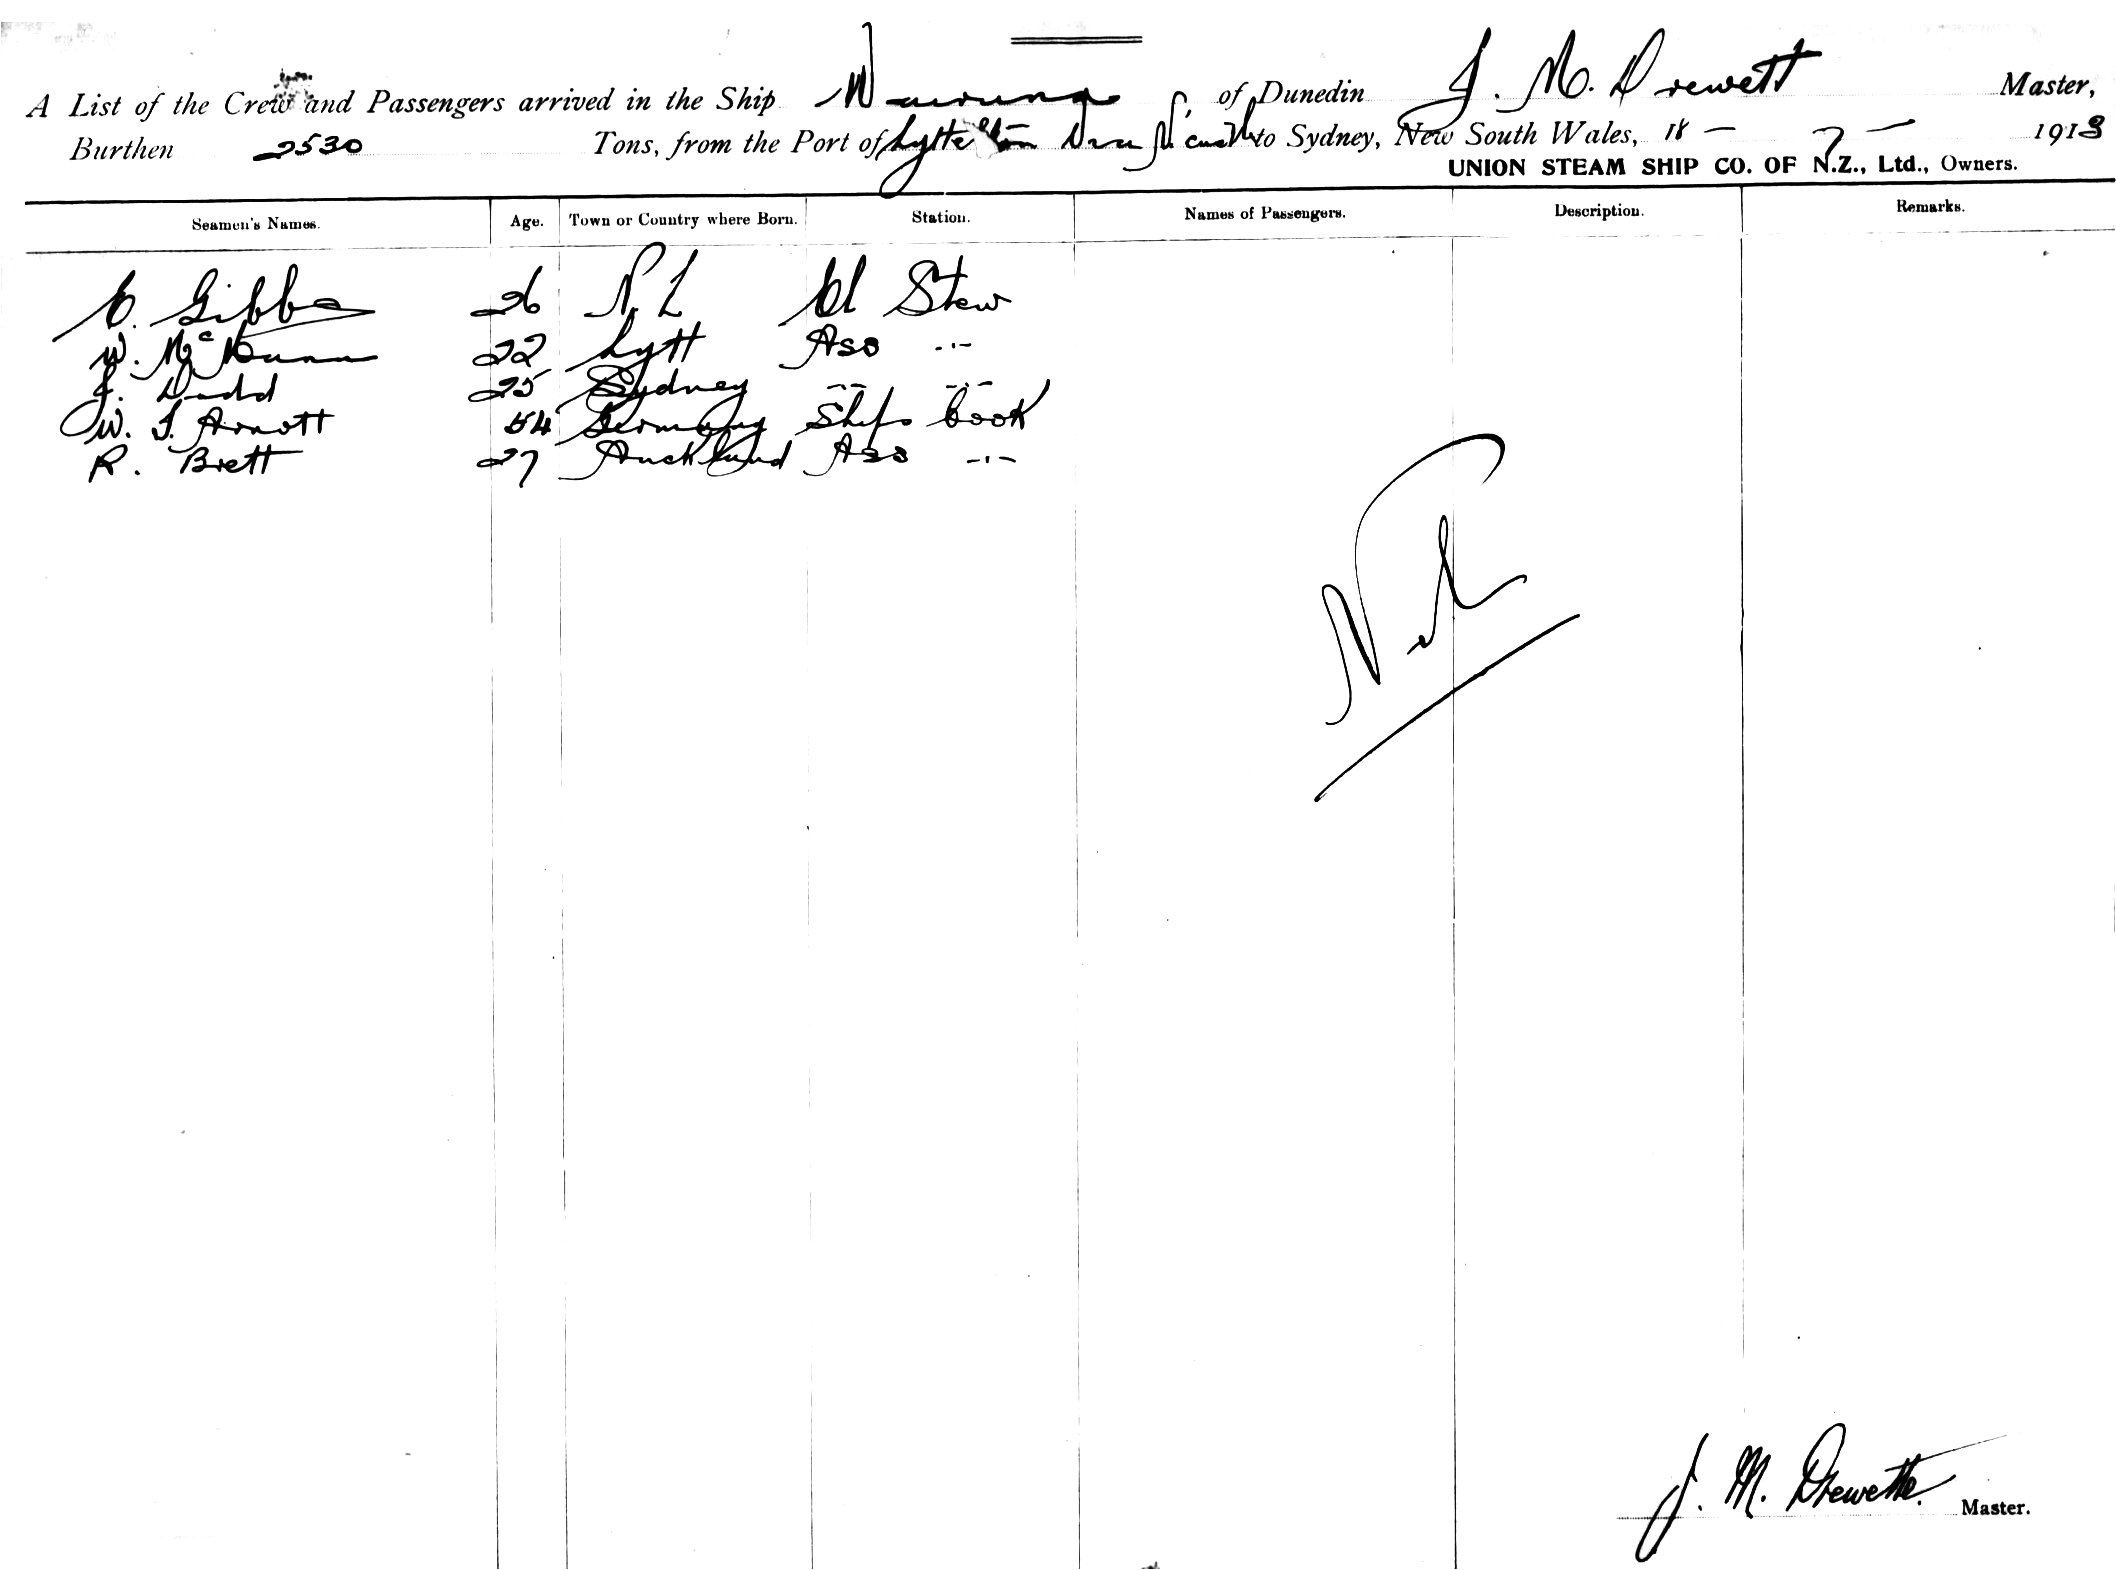 A List of the Crew and Passengers arrived in the Ship Wairuna of Dunedin J. M. Drewett Master,
Burthen 2530 Tons, from the Port of Lyttelton via N'castle to Sydney, New South Wales, 18 - 7 - 1913
UNION STEAM SHIP CO. OF N.Z., Ltd., Owners.
Seamen's Names. Age. Town or Country where Born. Station. Names of Passengers. Description. Remarks.
Gibbs 26 N.Z Ch Stew
W. McNunn 22 Lytt Ass -"-
J. Dudd 25 Sydney -- -"-
W. J. Arnott 54 Germany Ships Cook
R. Brett 27 Auckland Ass -"-
Nil
J. M. Drewette. Master.